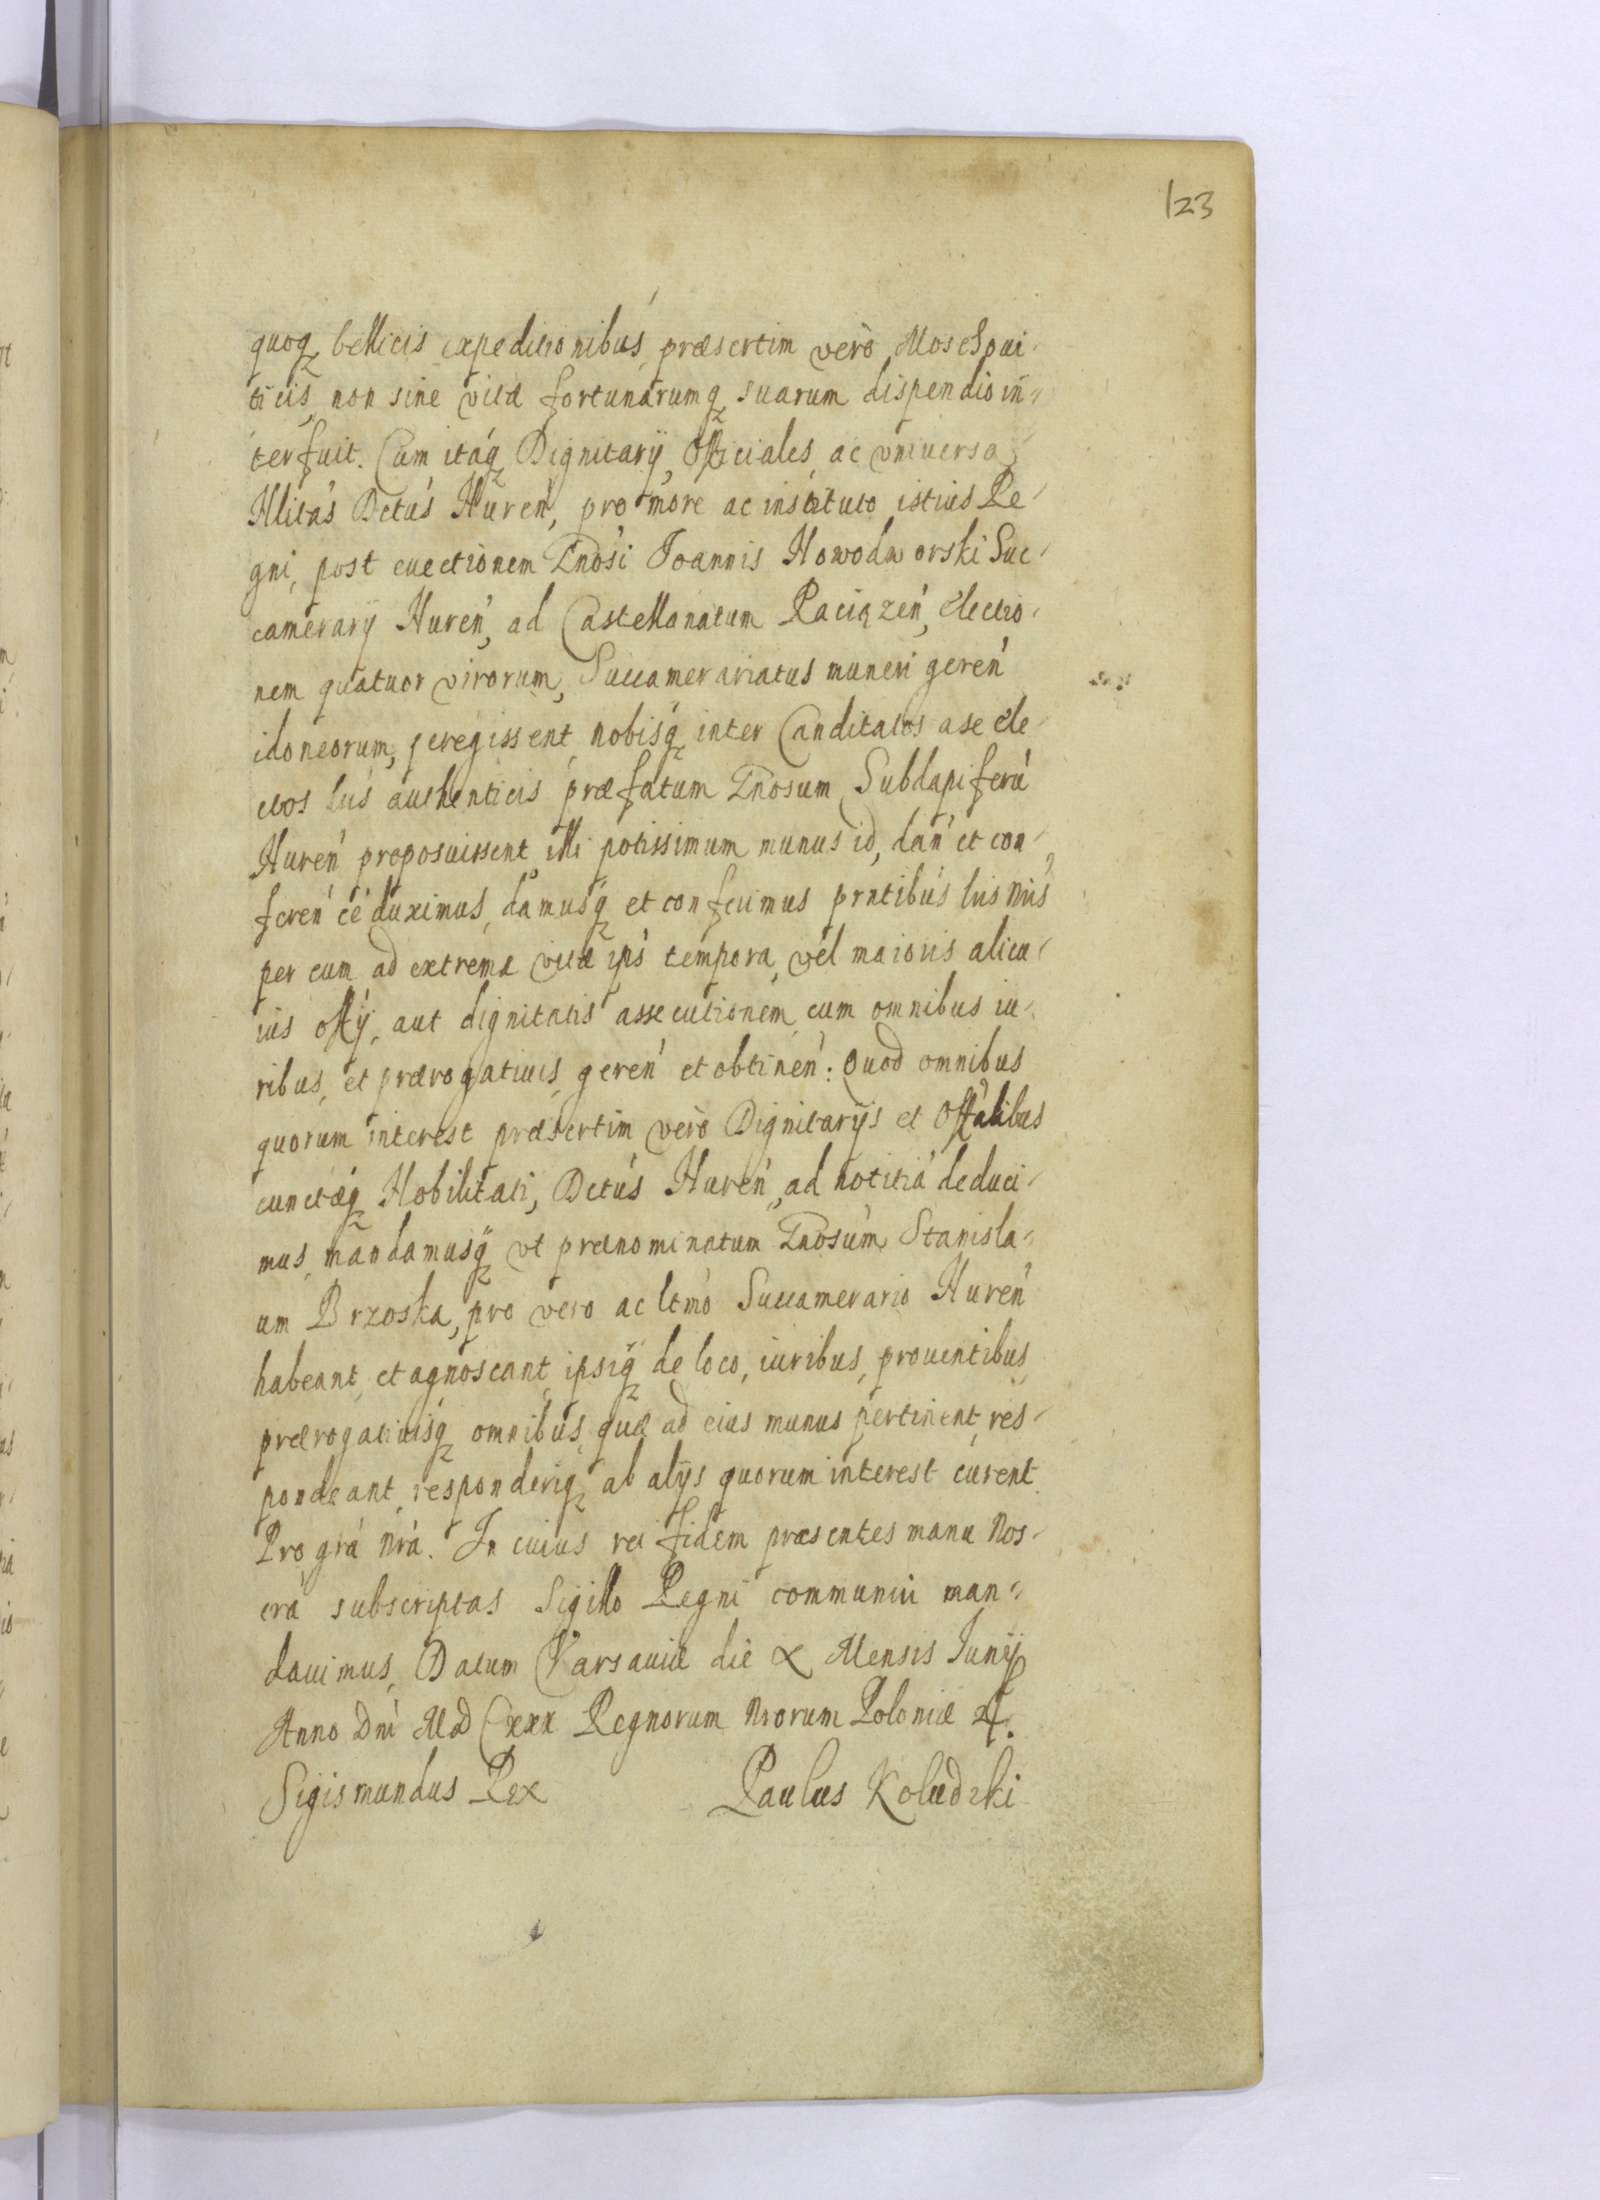 123
quoq, bellicis expeditionibus, præsertim verò Moschoui-
ticis, non sine vitæ fortunarumq suarum dispendio in-
terfuit. Cum itaq Dignitarij, Officiales, ac vniuersa
Nlitas Dctus Nuren, pro more ac instituto istius Re-
gni, post euectionem Gnosi Joannis Nowodworski Suc-
camerarij Nuren, ad Castellanatum Raciązen, electio-
nem quatuor virorum, Succamerariatus muneri geren
idoneorum, peregissent, nobisq inter Canditatos a se ele-
ctos Lris authenticis præfatum Gnosum Subdapiferũ
Nuren proposuissent, illi potissimum munus id, dan et con-
feren ee duximus, damusq et conferimus prntibus lris nris
per eum ad extrema vitæ ips tempora, vel maioris alicu-
ius offij, aut dignitatis assecutionem, cum omnibus iu-
ribus, et prærogatiuis, geren et obtinen: Quod omnibus
quorum interest præsertim verò Dignitarijs et Offalibus
cunctæq Nobilitati, Dctus Nuren, ad notitiã deduci-
mus, mandamusq vt prænominatum Gnosum Stanisla-
um Brzoska, pro vero ac ltmo Succamerario Nuren
habeant, et agnoscant, ipsiq de loco, iuribus, prouentibus,
prærogatiuisq omnibus, quæ ad eius munus pertinent, res-
pondeant, responderiq ab alijs quorum interest curent.
Pro grã nrã. In cuius rei fidem præsentes manu nos-
trã subscriptas Sigillo Regni communiri man-
dauimus, Datum Varsauiæ die X Mensis Junij
Anno Dni MDCxxx Regnorum Nrorum Poloniæ 4.
Sigismundus Rex Paulus Koludzki